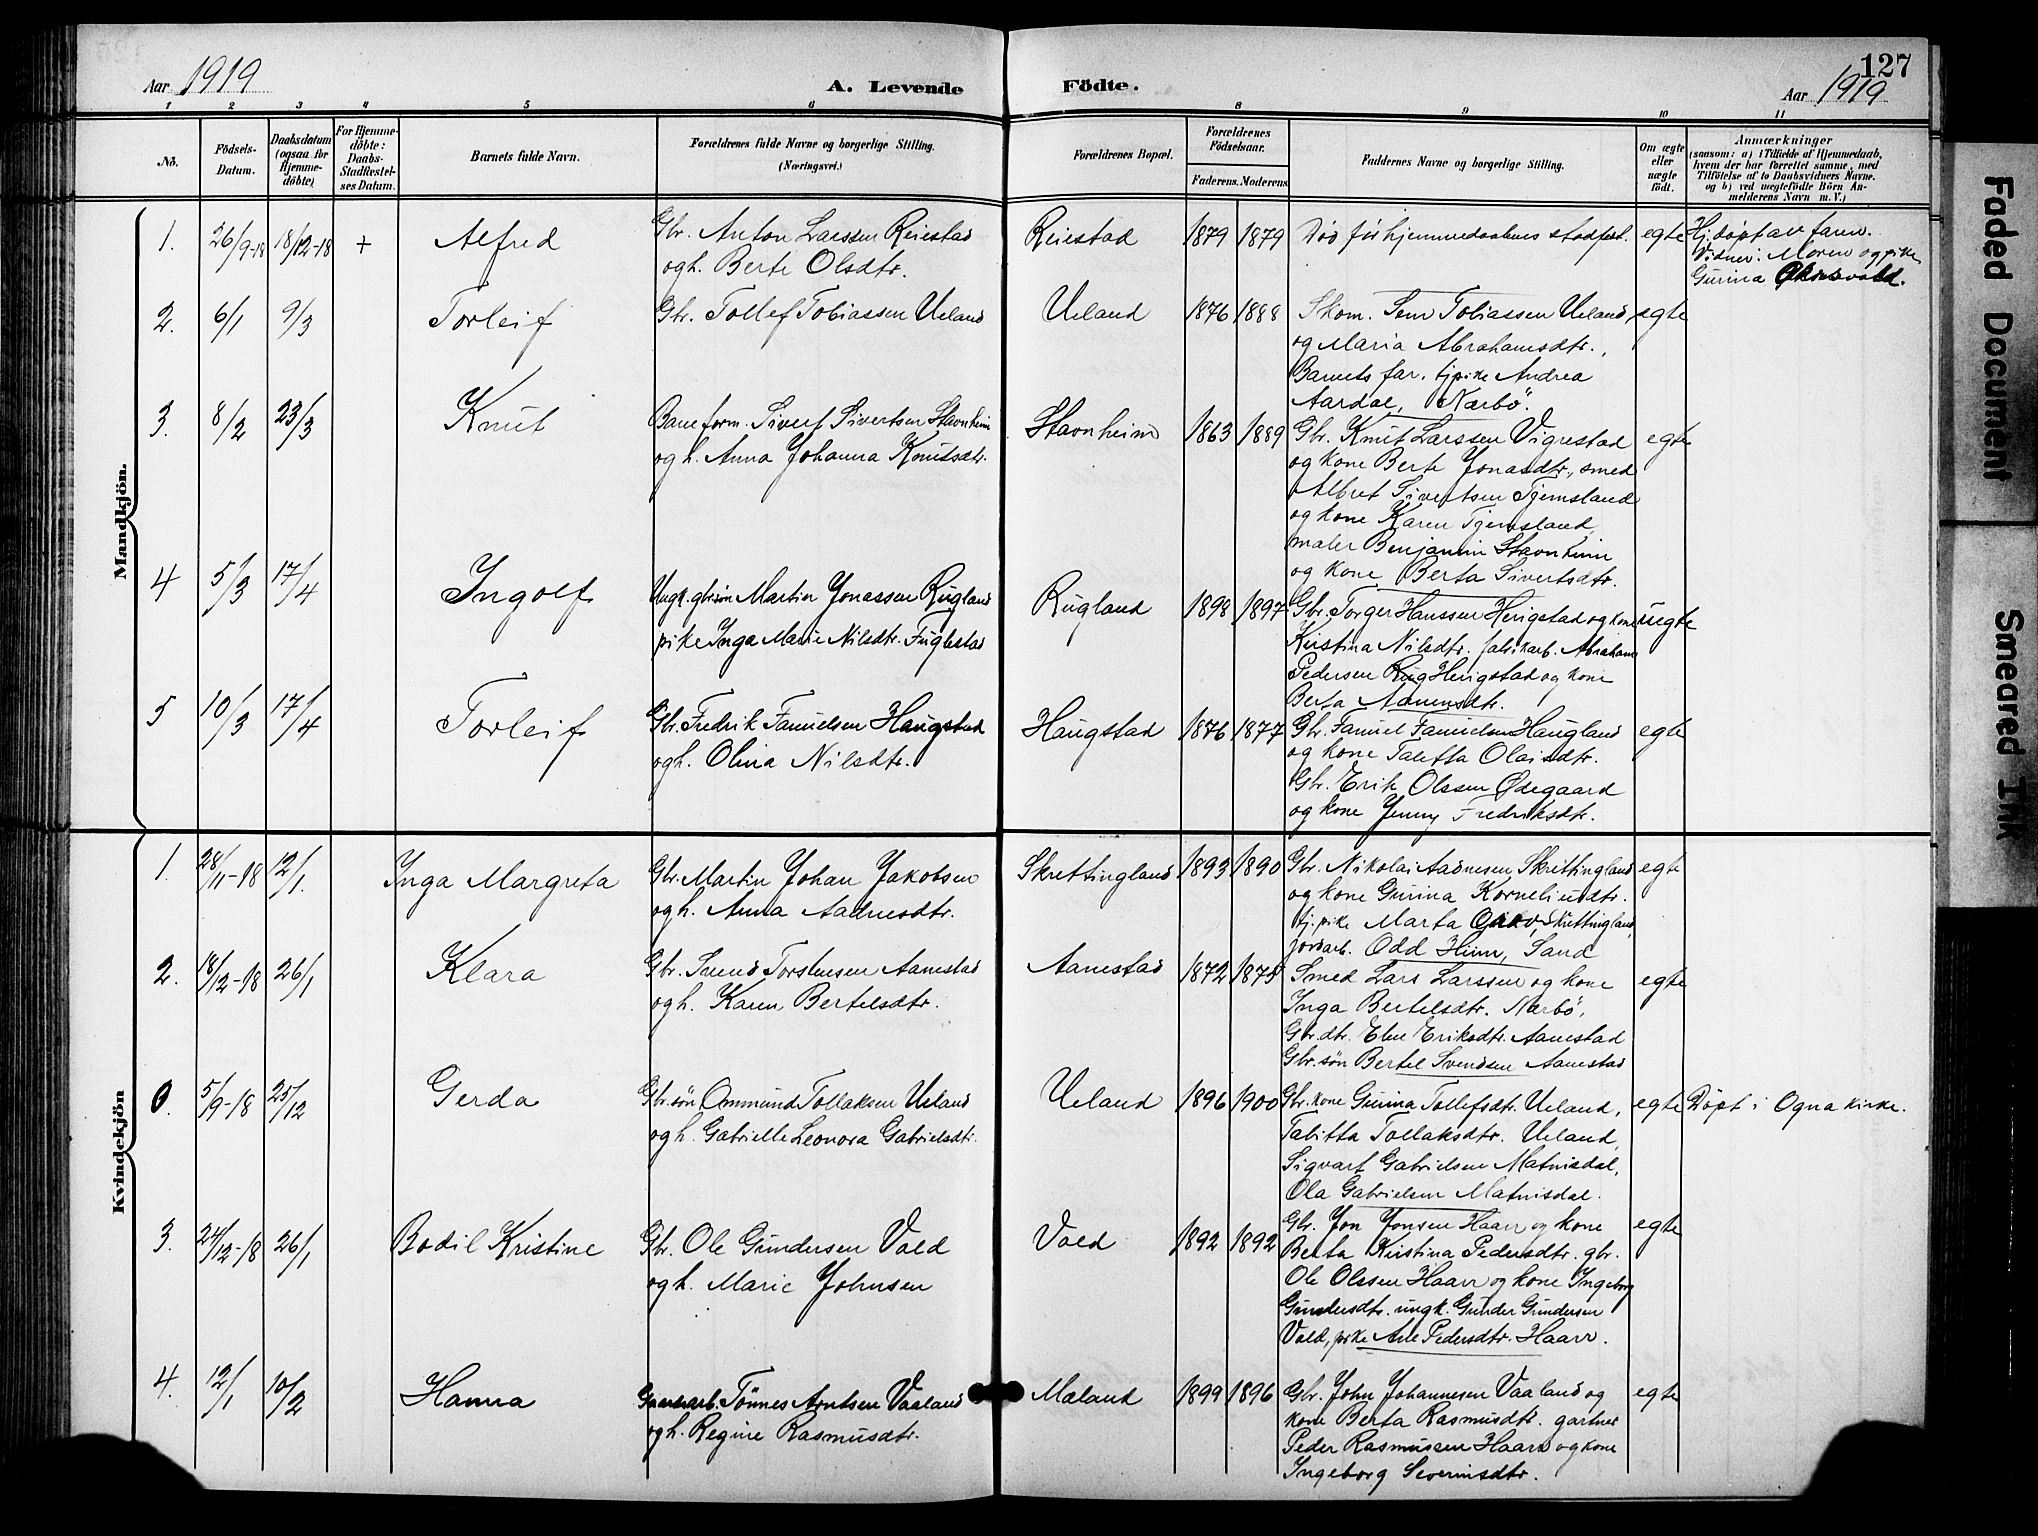 127
Aar 1919 A. Levende Födte. Aar 1919
1 2 3 4 5 6 8 9 10 11
No. Födsels-Datum. Daabsdatum (ogsaa for Hjemme-döbte) For Hjemme-döbte: Daabs-Stadfæstel-ses Datum. Barnets fulde Navn. Forældrenes fulde Navne og borgerlige Stilling. (Næringsvei.) Forældrenes Bopæl. Forældrenes Födselsaar. Faderens. Moderens. Faddernes Navne og borgerlige Stilling. Om ægte eller uægte födt. Anmærkninger (saasom: a) i Tilfælde af Hjemmedaab, hvem der har forrettet samme, med Tilföielse af to Daabsvidners Navne. og b) ved uægtefödte Börn An-melderens Navn m. V.)
Mandkjön.
1. 26/9-18 18/12-18 + Alfred Gbr. Anton Larssen Reiestad Reiestad 1879 1879 Død før hjemmedaabens stadfest. egte Hj.døpt av faren.
og h. Berte Olsdtr. Vidner: Moren og pike
Gurina
2. 6/1 9/3 Torleif Gbr. Tollef Tobiassen Ueland Ueland 1876 1888 Skom. Sem Tobiassen Ueland egte
og Maria Abrahamsdtr.,
Barnets far, tj.pike Andrea
Aardal, Nærbö.
3. 8/2 23/3 Knut Baneform. Sivert Sivertsen Stavnheim Stavnheim 1863 1889 Gbr. Knut Larssen Vigrestad egte
og h. Anna Johanna Knutsdtr. og kone Berte Jonasdtr., smed
Albret Sivertsen Tjemsland
og kone Karen Tjemsland,
maler Benjamin Stavnheim
og kone Berta Sivertsdtr.
4 5/3 17/4 Ingolf Ungk. gbr.søn Martin Jonassen Rugland Rugland 1898 1897 Gbr. Torger Hanssen Herigstad og kone uegte
pike Inga Marie Nilsdtr. Fuglestad Kristina Nilsdtr. fabrikarb. Abraham
Pedersen Herigstad og kone
Berta
5 10/3 17/4 Torleif Gbr. Fredrik Samuelsen Haugstad Haugstad 1876 1877 Gbr. Samuel Samuelsen Haugland egte
og h. Olina Nilsdtr. og kone Taletta Olaisdtr.
Gbr. Erik Olssen Ødegaard
og kone Jenny Fredriksdtr.
Kvindekjön
1. 28/11-18 12/1. Inga Margreta Gbr. Martin Johan Jakobsen Skrettingland 1893 1890 Gbr. Nikolai Aadnesen Skrettingland egte
og h. Anna Aadnesdtr. og kone Gurina Korneliusdtr.
tj.pike Marta Skrettingland,
jordarb. Odd Hiim, Sand
2. 18/12-18 26/1 Klara Gbr. Svend Torstensen Aanestad Aanestad 1872 1875 Smed Lars Larssen og kone egte
og h. Karen Bertelsdtr. Inga Bertelsdtr. Nærbö,
Gbr.dtr. Eline Eriksdtr. Aanestad
Gbr.søn Bertel Svendsen Aanestad
0. 5/9-18 25/12 Gerda Gbr.søn Ommund Tollaksen Ueland Ueland 1896 1900 Gbr.kone Gurina Tollefsdtr. Ueland, egte Døpt i Ogna kirke.
og h. Gabrielle Leonora Gabrielsdtr. Tabitta Tollaksdtr. Ueland,
Sigvart Gabrielsen Matnisdal,
Ola Gabrielsen Matnisdal.
3. 24/12-18 26/1 Bodil Kristine Gbr. Ole Gundersen Vold Vold 1892 1892 Gbr. Jon Jonsen Haarr og kone egte
og h. Marie Johnsen Berta Kristina Pedersdtr. gbr.
Ole Olssen Haarr og kone Ingeborg
Gundersdtr. ungk. Gunder Gundersen
Vold, pike Ane Pedersdtr. Haarr.
4. 12/1 10/2 Hanna Tønnes Arntsen Vaaland Mæland 1899 1896 Gbr. John Johannesen Vaaland og egte
og h. Regine Rasmusdtr. kone Berta Rasmusdtr. gartner
Peder Rasmussen Haarr og kone
Ingeborg Severinsdtr.
Faded Document
Smeared Ink